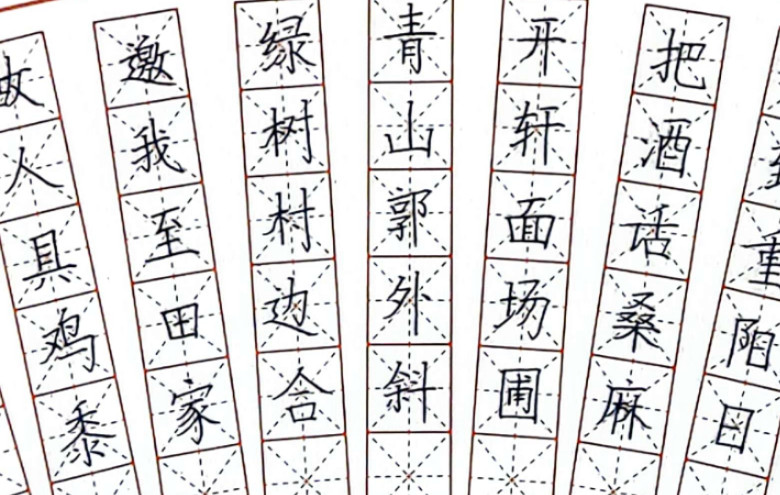 故人具鸡黍
邀我至田家
绿树村边合
青山郭外斜
开轩面场圃
把酒话桑麻
重阳日